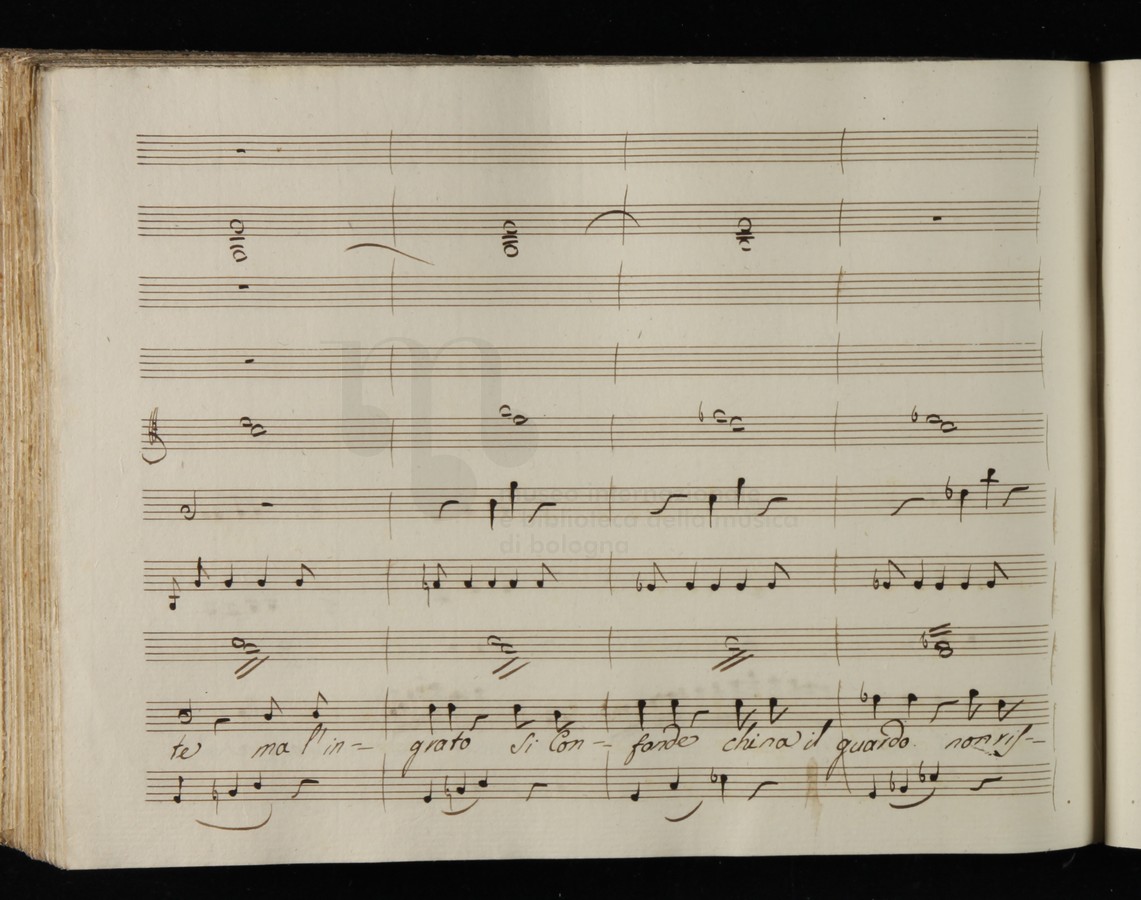 museo internazionale
e biblioteca della musica
di bologna
te ma l'in-- grato si Con-- fonde china il guardo non ris--